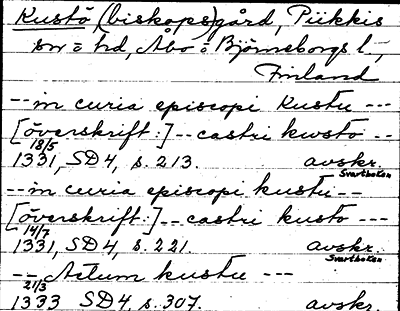 Kustö (biskops)gård, Piikkis
sn o hd, Åbo o Björneborgs l,
Finland
-- in curia episcopi Kustu ---
[överskrift:] -- castri kwsto --
18/5
1331, SD 4, s. 213. avskr.
Svartboken
-- in curia episcopi kustu --
[överskrift:] -- castri kusto ---
14/7
1331, SD 4, s. 221. avskr.
Svartboken
-- Actum kustu ---
21/3
1333 SD 4, s. 307. avskr.